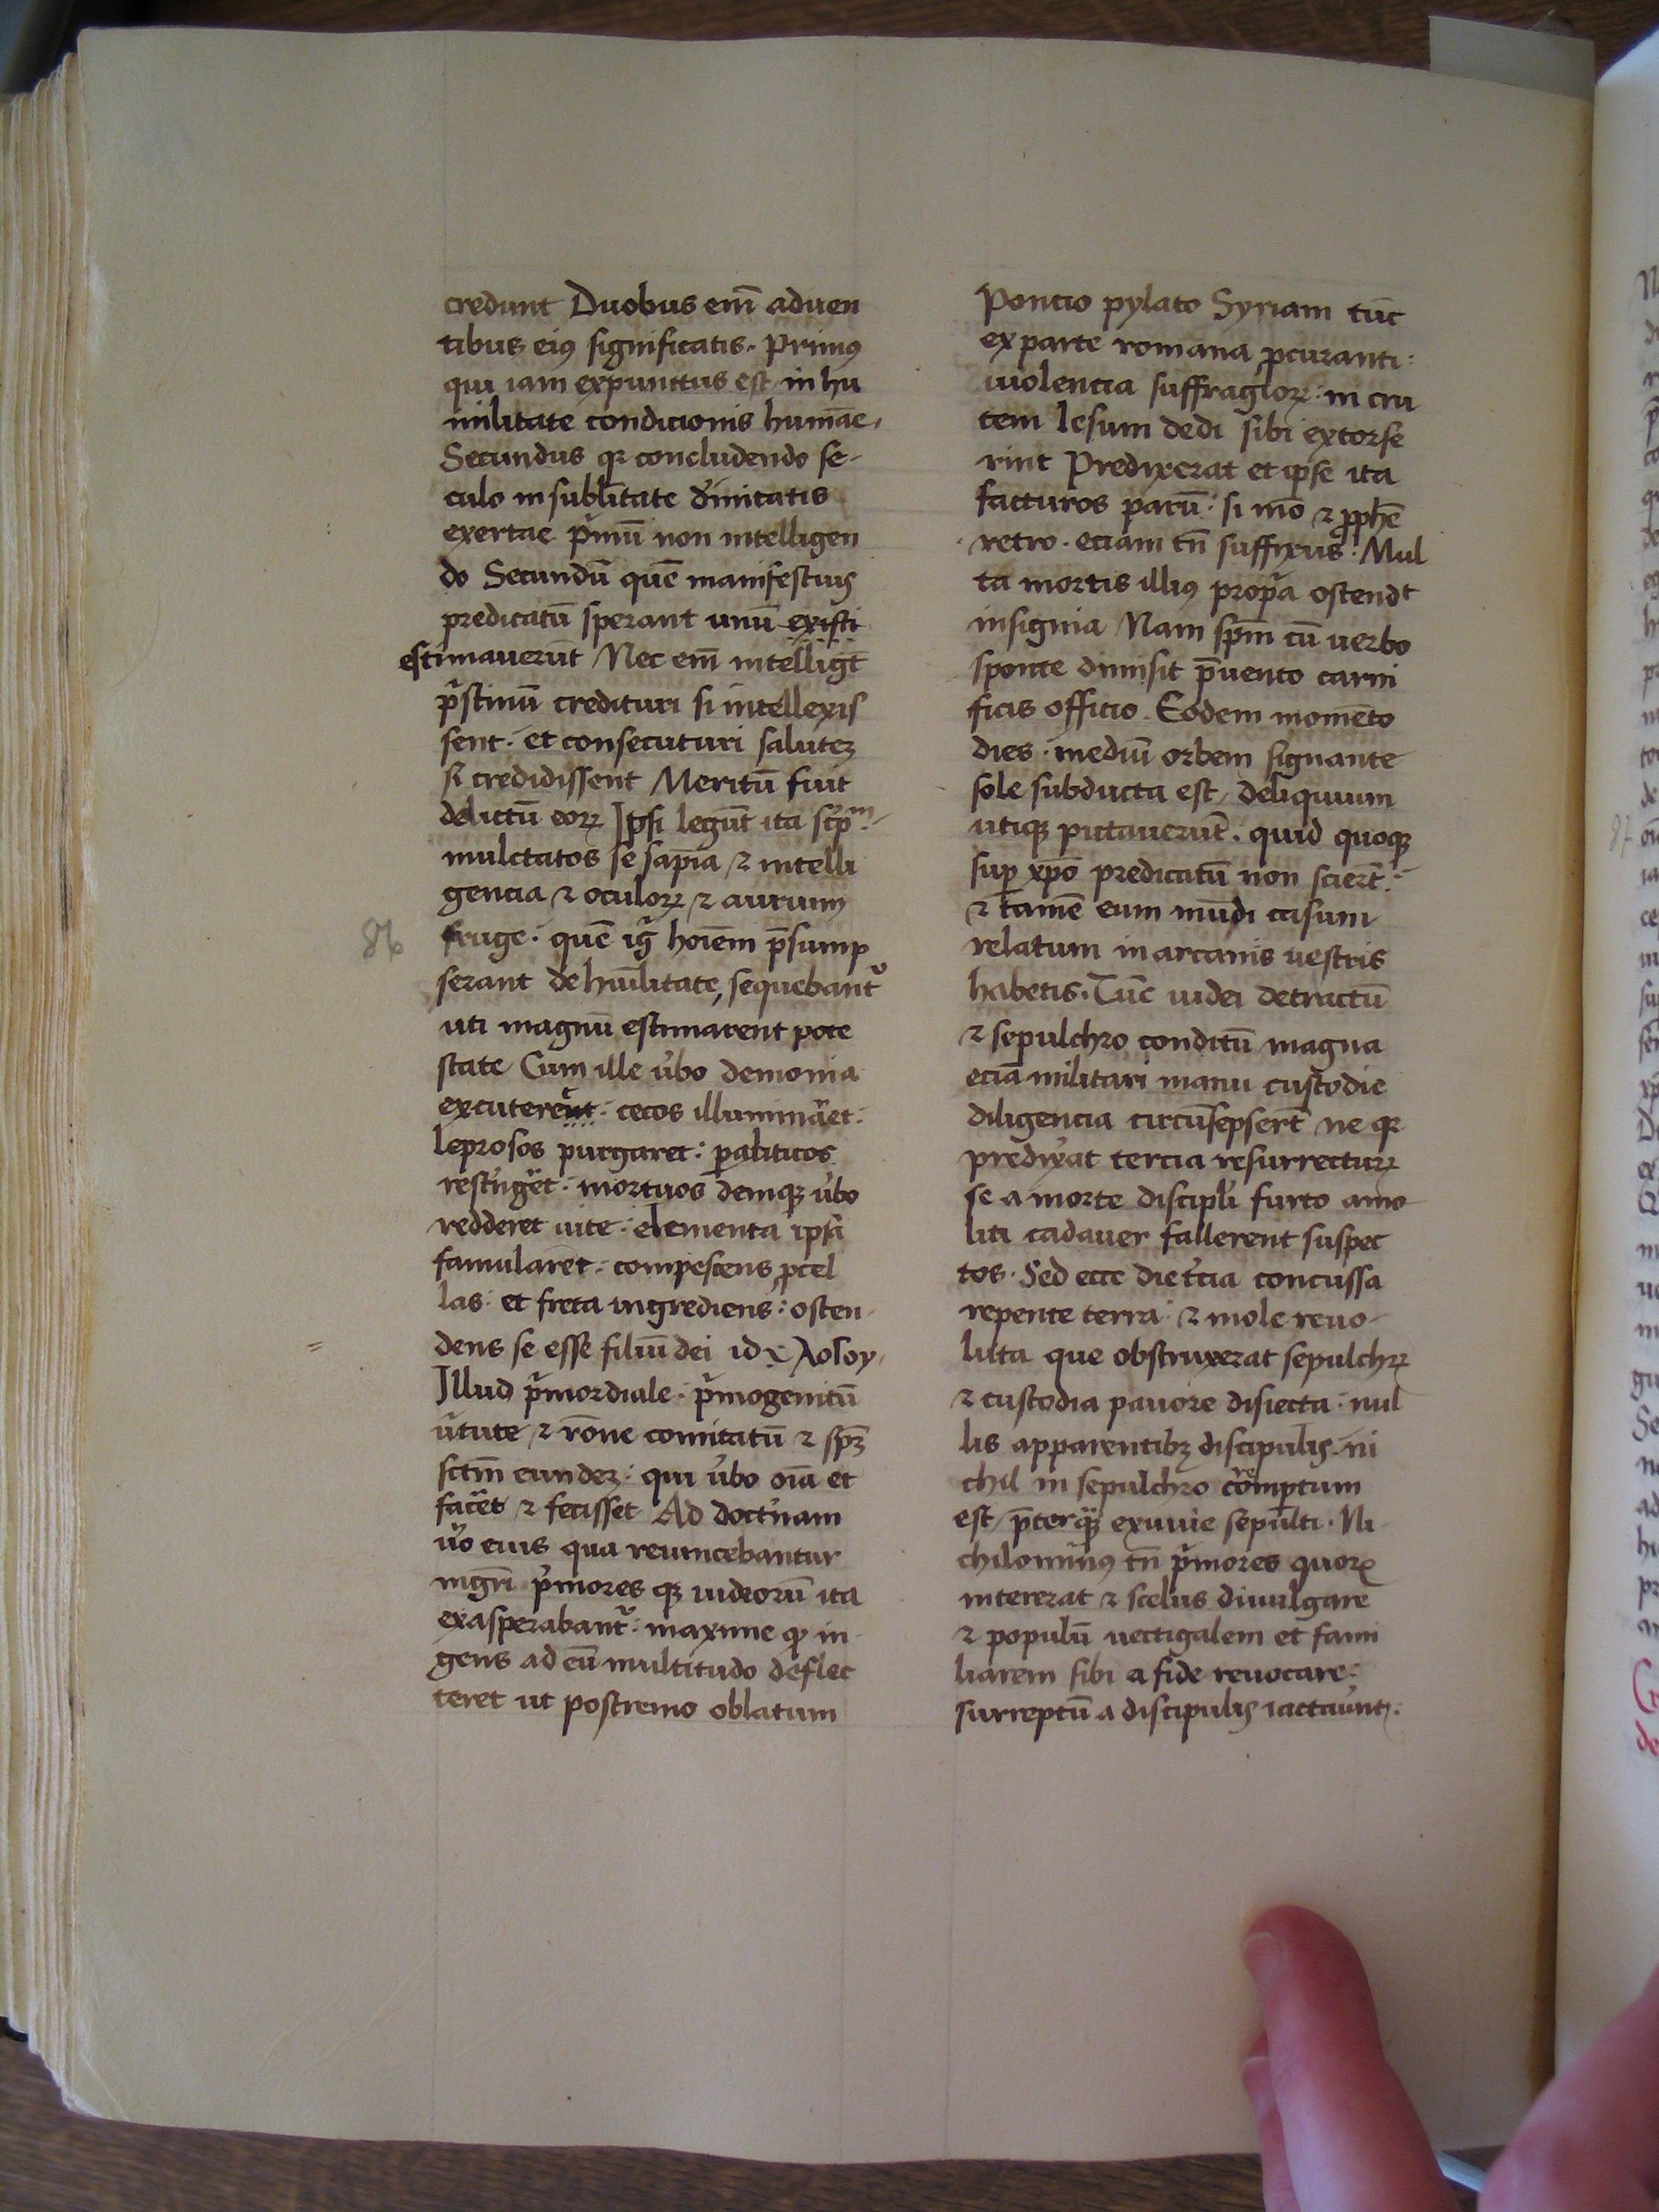 credunt Duobus em̄ aduen
tibus eiꝰ significatis. Primꝰ
qui iam expunctus est in hu
militate condicionis humāe,
Secundus qꝛ concludendo se-
culo in sublītate dīnitatis
exertae p̄mū non intelligen
do Secundū quē manifestius
predicatū sperant unū existi
estimauerūt Nec em̄ intelligt̄
pͥstinū credituri si intellexis
sent. et consecuturi salutez
si credidissent Meritū fuit
delictū eoꝝ Ipsi legūt ita scpᵐ.
mulctatos se sapīa ⁊ intelli
gencia ⁊ oculoꝝ ⁊ aurium
fruge. quē igͥ hoīem p̄sump
serant de hūilitate, sequebantᷣ
uti magnū estimarent pote
state Cum ille ūbo demonia
excuterent. cecos illuminaͣet.
leprosos purgaret: paliticos
rest'ngͣet. mortuos deniqꝫ ūbo
redderet uite. elementa ipsa
famularēt. compescens ꝓcel
las. et freta ingrediens: osten-
dens se esse filiū dei id ē λογου,
Illud pͥmordiale. pͥmogenitū
ūtute ⁊ rōne comitatū ⁊ spū
sctm̄ eundeꝫ. qui ūbo oīa et
facͣet ⁊ fecisset Ad doct'nam
ūo eius qua reuincebantur
mgr̄i pͥmores qꝫ iudeorū ita
exasperabantᷣ: maxime qꝫ in
gens ad eū multitudo deflec
teret ut postremo oblatum
Poncio pylato Syriam tūc
ex parte romana ꝓcuranti:
uiolencia suffragioꝝ. in cru
tem Iesum dedi sibi extorse
rint Predixerat et ip̄se ita
facturos parū. si mō ⁊ ꝓphē
retro. eciam tn̄ suffixus. Mul
ta mortis illiꝰ propͥa ostendt
insignia Nam sp̄m cū uerbo
sponte dimisit p̄uento carni
ficis officio. Eodem momēto
dies. mediū orbem signante
sole subducta est, deliquium
utiqꝫ putauerūt. quid quoqꝫ
suꝑ xp̄o predicatū non scierт̄.
⁊ tamē eum mūdi casum
relatum in arcanis uestris
habetis. Tūc iudei detractū
⁊ sepulchro conditū magna
eciā militari manu custodie
diligencia circūsepserт̄ ne qꝛ
predix'at tercia resurrecturꝝ
se a morte discipl'i furto amo
liti cadauer fallerent suspec
tos. Sed ecce die t'cia concussa
repente terra. ⁊ mole reuo-
luta que obstruxerat sepulchrꝝ
⁊ custodia pauore disiecta. nul
lis apparentibꝫ discipulis. ni
chil in sepulchro compertum
est p̄terqͣꝫ exuuie sepulti. Ni
chilominꝰ tn̄ pͥmores quoꝝ
intererat ⁊ scelus diuulgare
⁊ populū uectigalem et fami
liarem sibi a fide reuocare:
surreptū a discipulis iactauͬnt.
86